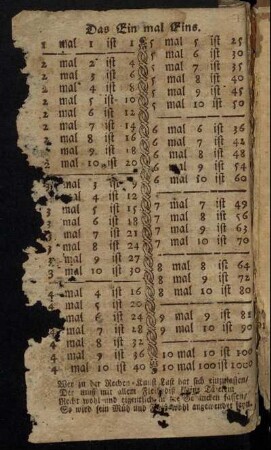 Das Ein mal Eins.
1 mal 1 ist 1
2 mal 2 ist 4
2 mal 3 ist 6
2 mal 4 ist 8
2 mal 5 ist 10
2 mal 6 ist 12
2 mal 7 ist 14
2 mal 8 ist 16
2 mal 9 ist 18
2 mal 10 ist 20
3 mal 3 ist 9
3 mal 4 ist 12
3 mal 5 ist 15
3 mal 6 ist 18
3 mal 7 ist 21
3 mal 8 ist 24
3 mal 9 ist 27
3 mal 10 ist 30
4 mal 4 ist 16
4 mal 5 ist 20
4 mal 6 ist 24
4 mal 7 ist 28
4 mal 8 ist 32
4 mal 9 ist 36
4 mal 10 ist 40
5 mal 5 ist 25
5 mal 6 ist 30
5 mal 7 ist 35
5 mal 8 ist 40
5 mal 9 ist 45
5 mal 10 ist 50
6 mal 6 ist 36
6 mal 7 ist 42
6 mal 8 ist 48
6 mal 9 ist 54
6 mal 10 ist 60
7 mal 7 ist 49
7 mal 8 ist 56
7 mal 9 ist 63
7 mal 10 ist 70
8 mal 8 ist 64
8 mal 9 ist 72
8 mal 10 ist 80
9 mal 9 ist 81
9 mal 10 ist 90
10 mal 10 ist 100
10 mal 100 ist 1000
Wer in der Rechen-Kunst Lust hat sich
Der muß mit allem Fleiß diß Eins
Recht wohl und eigentlich in fassen/
So wird sein Müh und wohl angewendet seyn.